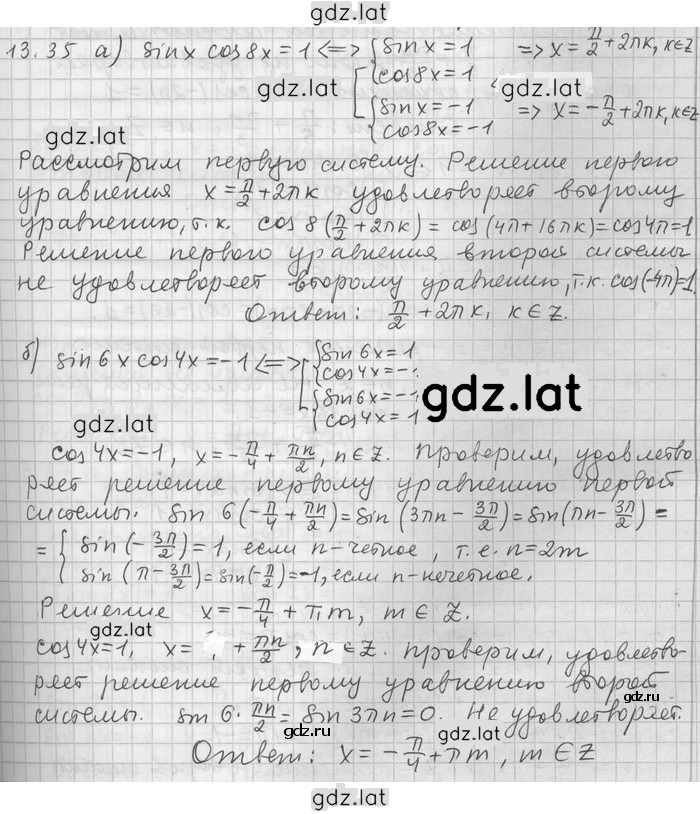 gdz.lat
13.35 а) sinx cos8x=1 <=> [ { sinx=1 => x=π/2+2πк, к∈Z
cos8x=1
gdz.lat gdz.lat
{ sinx=-1 => x=-π/2+2πк, к∈Z
cos8x=-1
gdz.lat
Рассмотрим первую систему. Решение первого
уравнения x=π/2+2πк удовлетворяет второму
уравнению, т.к. cos 8(π/2+2πк)=cos(4π+16πк)=cos4π=1
Решение первого уравнения второй системы
не удовлетворяет второму уравнению, т.к. cos(-4π)=1.
Ответ: π/2+2πк, к∈Z.
б) sin6x cos4x=-1 <=> [ { sin6x=1
cos4x=-1
{ sin6x=-1
cos4x=1
gdz.lat
gdz.lat
cos4x=-1, x=-π/4+πn/2, n∈Z. Проверим, удовлетво
ряет решение первому уравнению первой
системы. sin 6(-π/4+πn/2)=sin(3πn-3π/2)=sin(πn-3π/2)=
= { sin(-3π/2)=1, если n-четное, т.е. n=2m
sin(π-3π/2)=sin(-π/2)=-1, если n-нечетное.
Решение x=-π/4+πm, m∈Z.
gdz.lat
cos4x=1, x= +πn/2, n∈Z. Проверим, удовлетво-
ряет решение первому уравнению второй
gdz.lat
системы. sin 6·πn/2=sin3πn=0. Не удовлетворяет.
gdz.lat
Ответ: x=-π/4+πm, m∈Z
gdz.lat